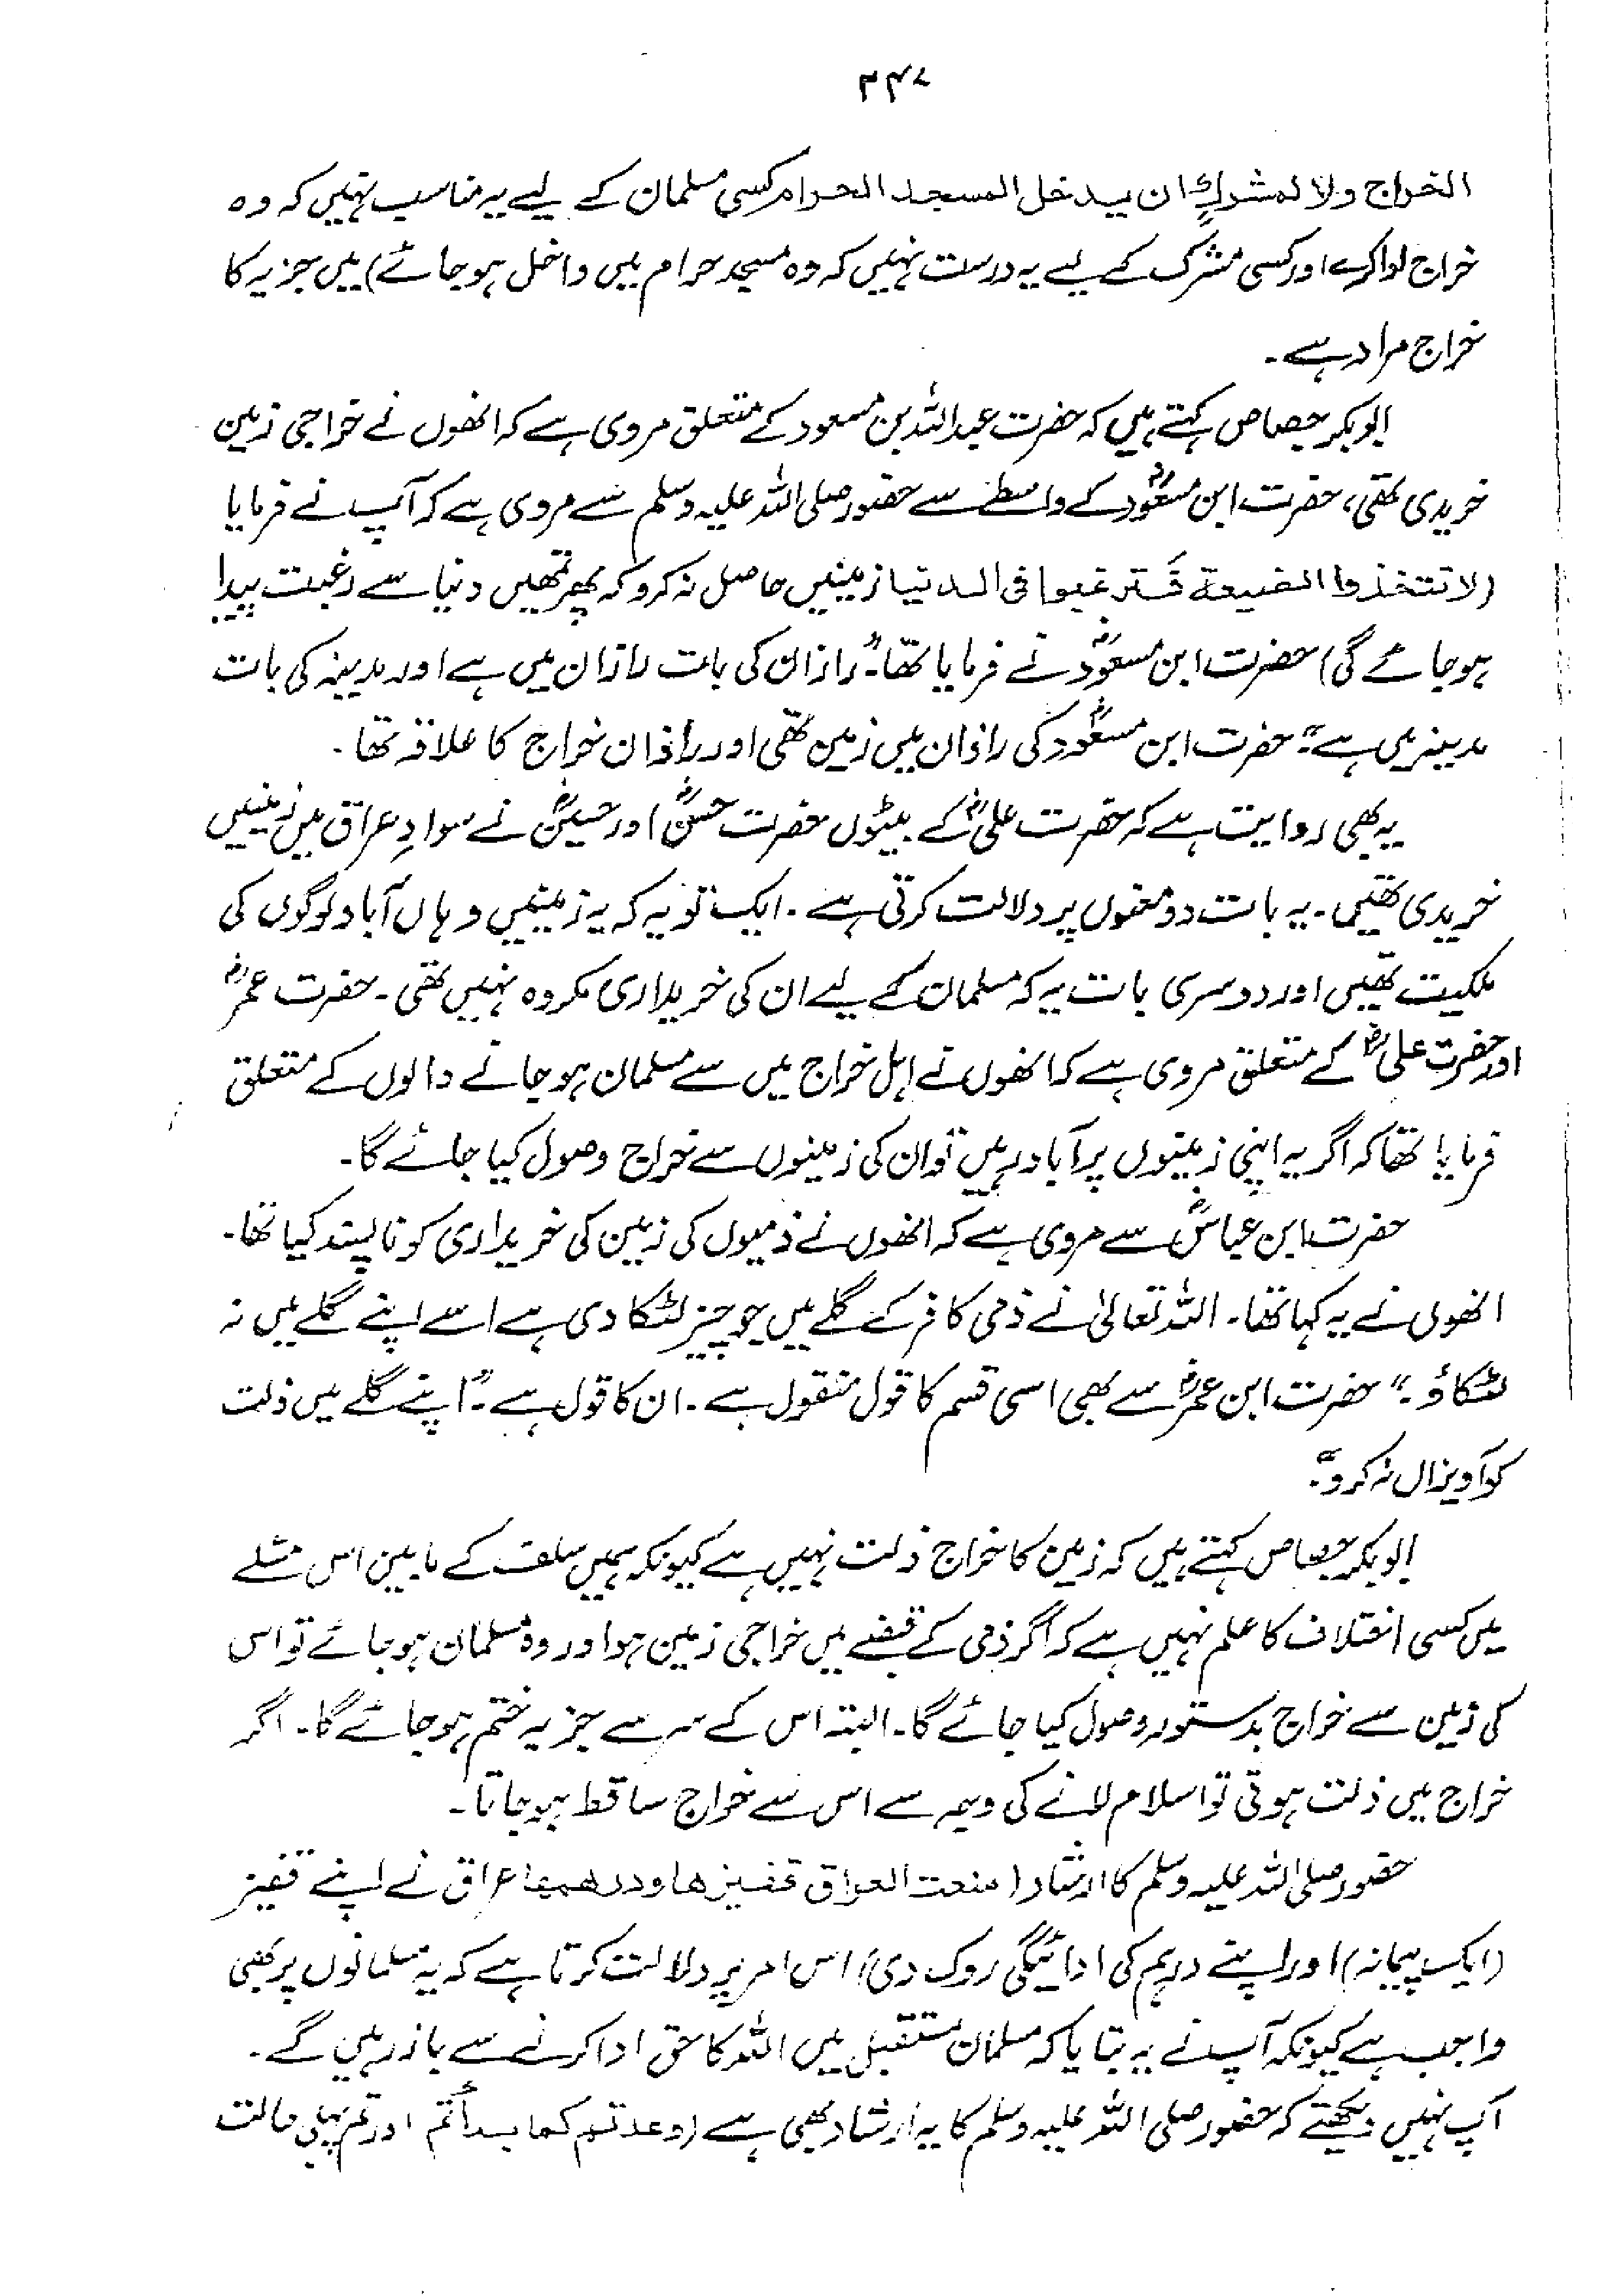 ۲۴۷
الخراج ولا لمشركٍ ان يدخل المسجد الحرام کسی مسلمان کے لیے یہ مناسب نہیں کہ وہ
خراج ادا کرے اور کسی مشرک کے لیے یہ درست نہیں کہ وہ مسجد حرام میں داخل ہو جائے) میں جزیہ کا
خراج مراد ہے۔
ابوبکر جصاص کہتے ہیں کہ حضرت عبداللہ بن مسعود کے متعلق مروی ہے کہ انھوں نے خراجی زمین
خریدی تھی، حضرت ابن مسعودؓ کے واسطے سے حضور صلی اللہ علیہ وسلم سے مروی ہے کہ آپ نے فرمایا
(لا تتخذوا الضيعة فَترغبوا فى الدنيا زمینیں حاصل نہ کرو کہ پھر تمھیں دنیا سے رغبت پیدا
ہو جائے گی) حضرت ابن مسعودؓ نے فرمایا تھا۔ "راذان کی بات راذان میں ہے اور مدینہ کی بات
مدینہ میں ہے"۔ حضرت ابن مسعودؓ کی راذان میں زمین تھی اور راذان خراج کا علاقہ تھا۔
یہ بھی روایت ہے کہ حضرت علیؓ کے بیٹوں حضرت حسنؓ اور حسینؓ نے سوادِ عراق میں زمینیں
خریدی تھیں۔ یہ بات دو معنوں پر دلالت کرتی ہے۔ ایک تو یہ کہ یہ زمینیں وہاں آباد لوگوں کی
ملکیت تھیں اور دوسری بات یہ کہ مسلمان کے لیے ان کی خریداری مکروہ نہیں تھی۔ حضرت عمرؓ
اور حضرت علیؓ کے متعلق مروی ہے کہ انھوں نے اہل خراج میں سے مسلمان ہو جانے والوں کے متعلق
فرمایا تھا کہ اگر یہ اپنی زمینوں پر آباد رہیں تو ان کی زمینوں سے خراج وصول کیا جائے گا۔
حضرت ابن عباسؓ سے مروی ہے کہ انھوں نے ذمیوں کی زمین کی خریداری کو ناپسند کیا تھا۔
انھوں نے یہ کہا تھا۔ اللہ تعالیٰ نے ذمی کافر کے گلے میں جو چیز لٹکا دی ہے اسے اپنے گلے میں نہ
لٹکاؤ۔" حضرت ابن عمرؓ سے بھی اسی قسم کا قول منقول ہے۔ ان کا قول ہے۔ "اپنے گلے میں ذلت
کو آویزاں نہ کرو"۔
ابوبکر جصاص کہتے ہیں کہ زمین کا خراج ذلت نہیں ہے کیونکہ ہمیں سلف کے مابین اس مسئلے
میں کسی اختلاف کا علم نہیں ہے کہ اگر ذمی کے قبضے میں خراجی زمین ہو اور وہ مسلمان ہو جائے تو اس
کی زمین سے خراج بدستور وصول کیا جائے گا۔ البتہ اس کے سر سے جزیہ ختم ہو جائے گا۔ اگر
خراج میں ذلت ہوتی تو اسلام لانے کی وجہ سے اس سے خراج ساقط ہو جاتا۔
حضور صلی اللہ علیہ وسلم کا ارشاد (منعت العراق قفيزها ودرهمها عراق نے اپنے قفیز
(ایک پیمانہ) اور اپنے درہم کی ادائیگی روک دی) اس امر پر دلالت کرتا ہے کہ یہ مسلمانوں پر بھی
واجب ہے کیونکہ آپ نے یہ بتایا کہ مسلمان مستقبل میں اللہ کا حق ادا کرنے سے باز رہیں گے۔
آپ نہیں دیکھتے کہ حضور صلی اللہ علیہ وسلم کا یہ ارشاد بھی ہے (وعدتم كما بدأتم اور تم پہلی حالت